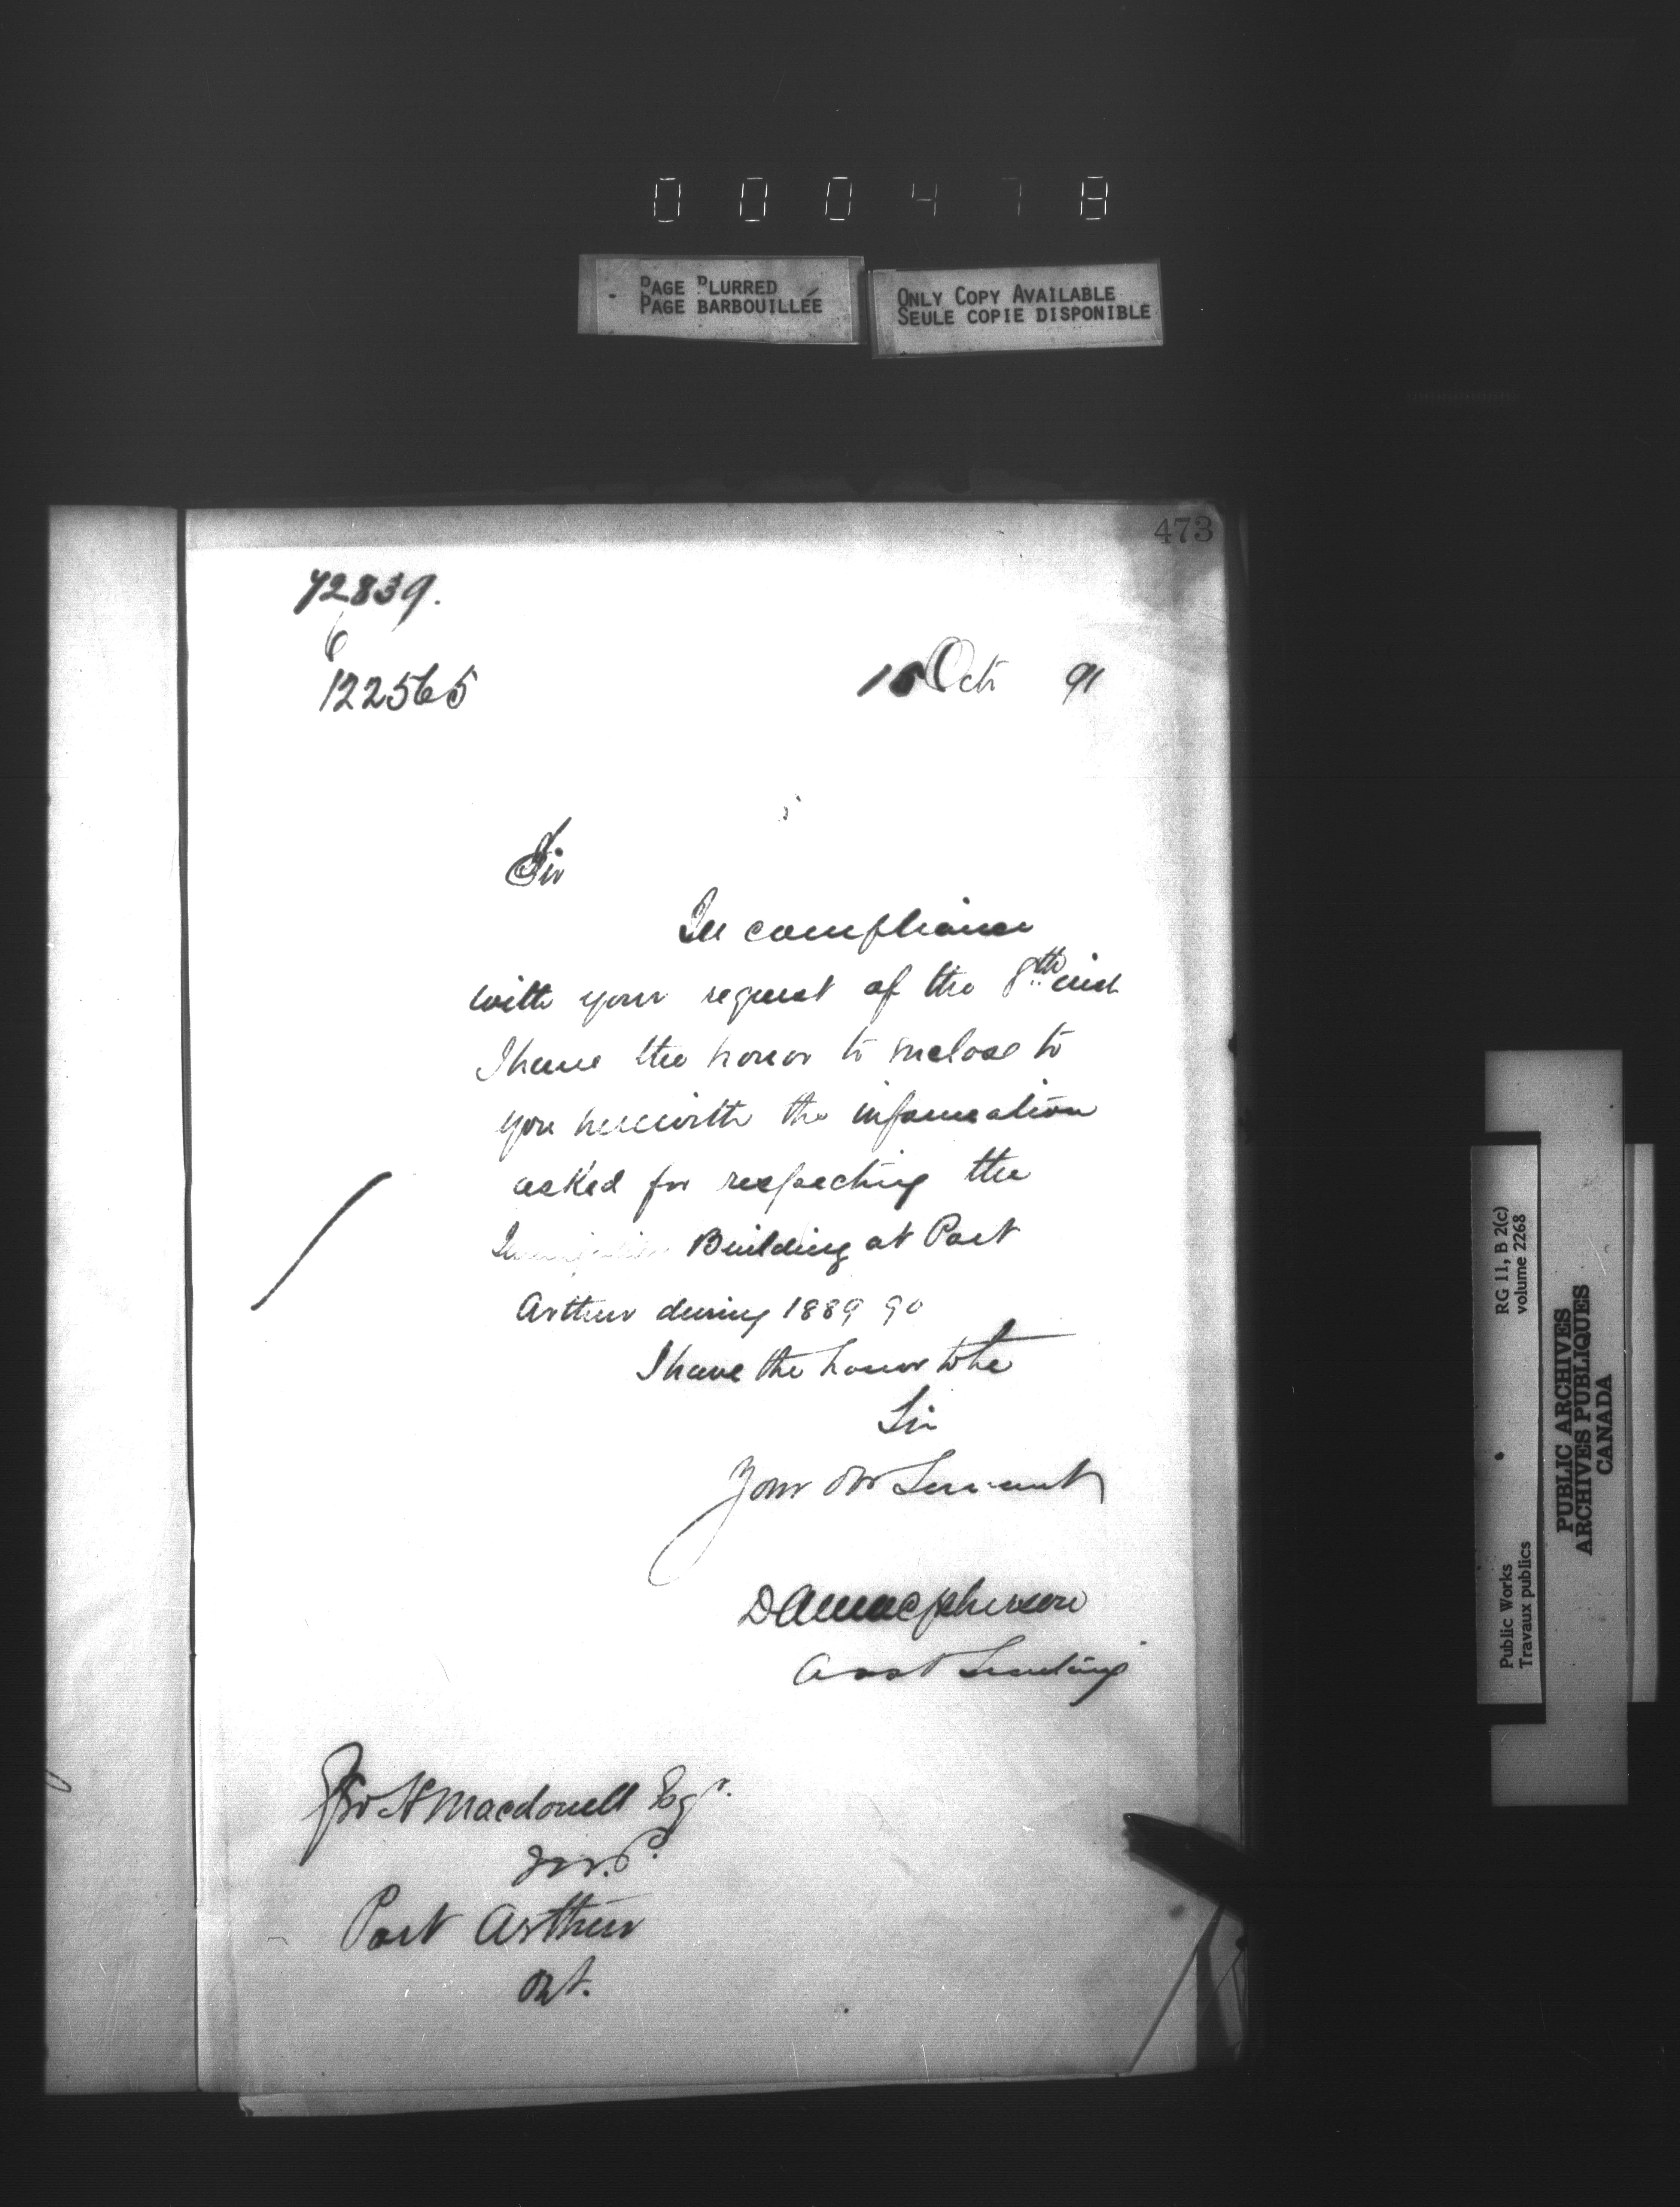 000478
PAGE BLURRED
PAGE BARBOUILLÉE
ONLY COPY AVAILABLE
SEULE COPIE DISPONIBLE
473
72839.
6
122565
Oct 91
Sir
In compliance
with your request of the 8th inst
I have the honor to inclose to
you herewith the information
asked for respecting the
Building at Port
Arthur during 1889 90
I have the honor to be
Sir
Your Obt Servant
D A Macpherson
Asst
H Macdonell Esqr.
Port Arthur
Ont.
Public Works
Travaux publics
RG 11, B 2(c)
volume 2268
PUBLIC ARCHIVES
ARCHIVES PUBLIQUES
CANADA